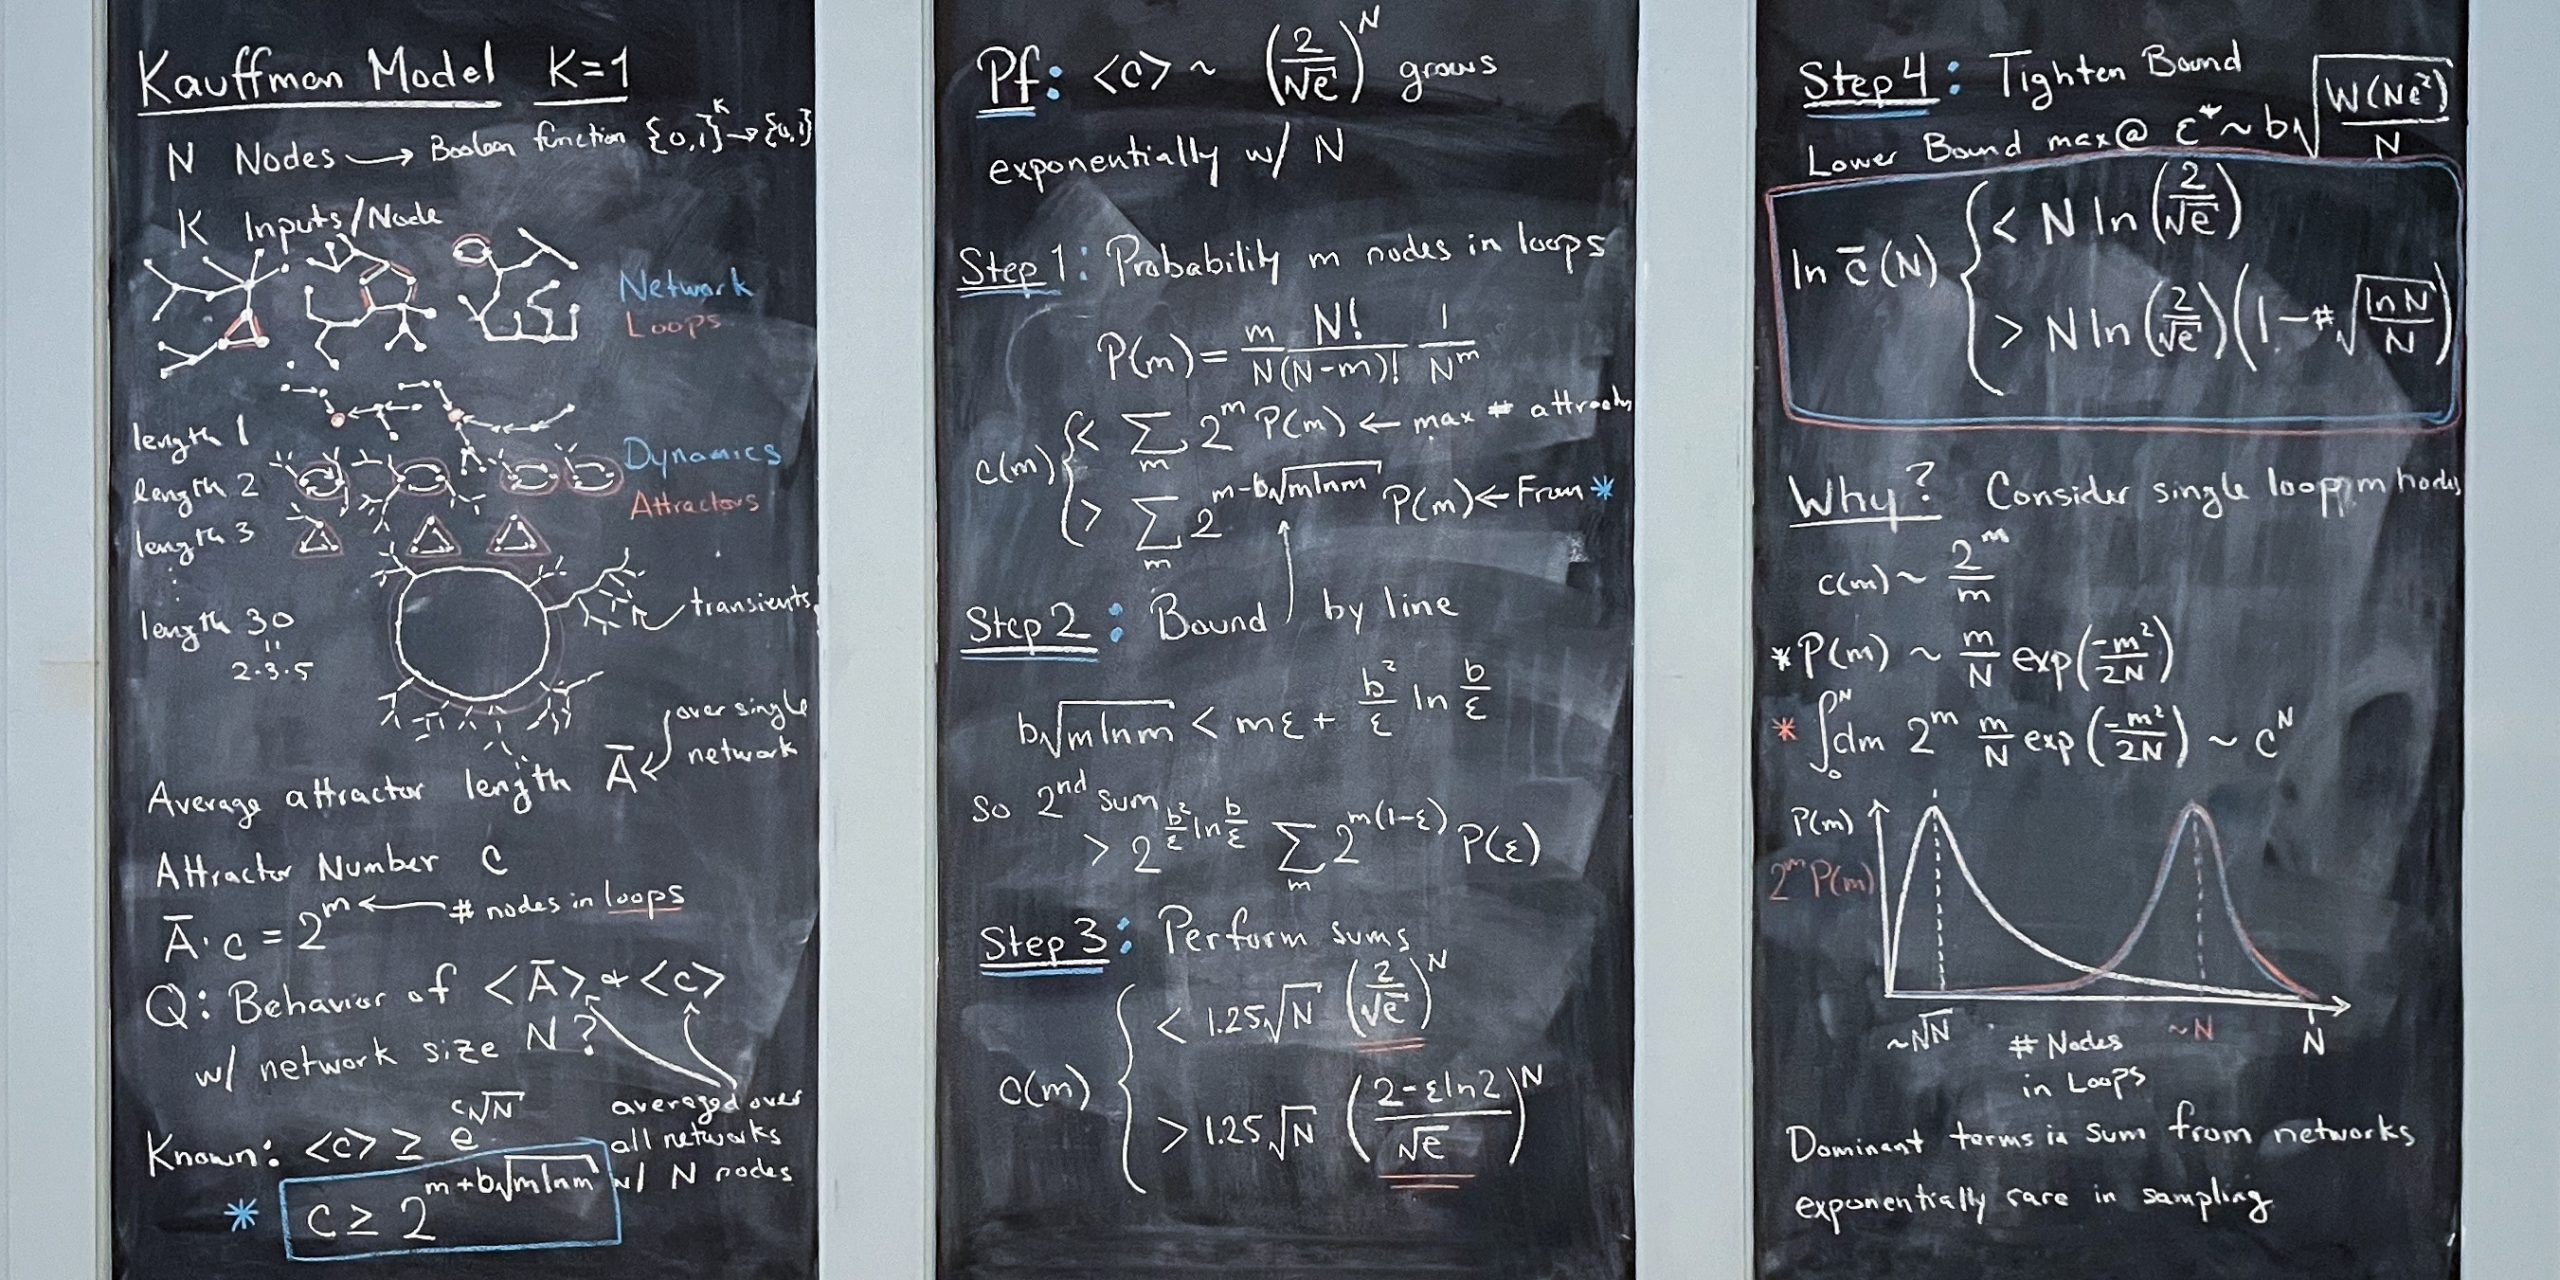 Kauffman Model K=1
N Nodes → Boolean function {0,1}^K → {0,1}
K Inputs/Node
Network
Loops
length 1
length 2
length 3
Dynamics
Attractors
⋮
length 30
"
2·3·5
transients
Average attractor length Ā ← over single network
Attractor Number C
Ā·c = 2^m ← # nodes in loops
Q: Behavior of <Ā> & <c>
w/ network size N?
averaged over
all networks
w/ N nodes
Known: <c> ≥ e^{c√N}
* C ≥ 2^{m+b√(m ln m)}
Pf: <c> ~ (2/√e)^N grows
exponentially w/ N
Step 1: Probability m nodes in loops
P(m) = m/N N!/(N-m)! 1/N^m
c(m) { < Σ_m 2^m P(m) ← max # attractors
> Σ_m 2^{m-b√(m ln m)} P(m) ← From *
Step 2: Bound ↑ by line
b√(m ln m) < mε + b²/ε ln b/ε
So 2nd sum
> 2^{b²/ε ln b/ε} Σ_m 2^{m(1-ε)} P(ε)
Step 3: Perform sums
c(m) { < 1.25√N (2/√e)^N
> 1.25√N ((2-ε ln 2)/√e)^N
Step 4: Tighten Bound
Lower Bound max @ ε* ~ b√(W(Ne²)/N)
ln c̄(N) { < N ln (2/√e)
> N ln (2/√e) (1 - #√(ln N/N))
Why? Consider single loop, m nodes
c(m) ~ 2^m/m
* P(m) ~ m/N exp(-m²/2N)
* ∫_0^N dm 2^m m/N exp(-m²/2N) ~ c^N
P(m)
2^m P(m)
~√N
# Nodes
in Loops
~N
N
Dominant terms in sum from networks
exponentially rare in sampling